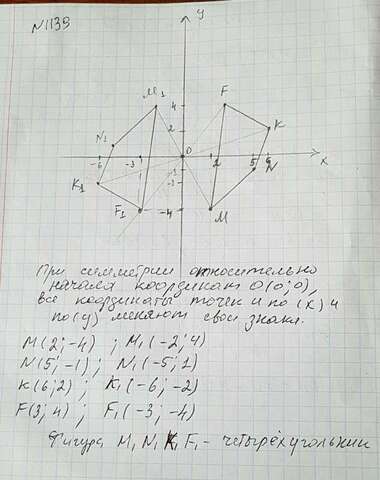 N1139
y
M1
F
4
K
2
N1
-6
-3
0
2
5
6
x
N
K1
-1
-1
F1
-4
M
При симметрии относительно
начала координат O(0;0),
все координаты точек и по (x) и
по (y) меняют свои знаки.
M(2;-4) ; M1(-2;4)
N(5;-1) ; N1(-5;1)
K(6;2) ; K1(-6;-2)
F(3;4) ; F1(-3;-4)
Фигура M1 N1 K1 F1 - четырёхугольник